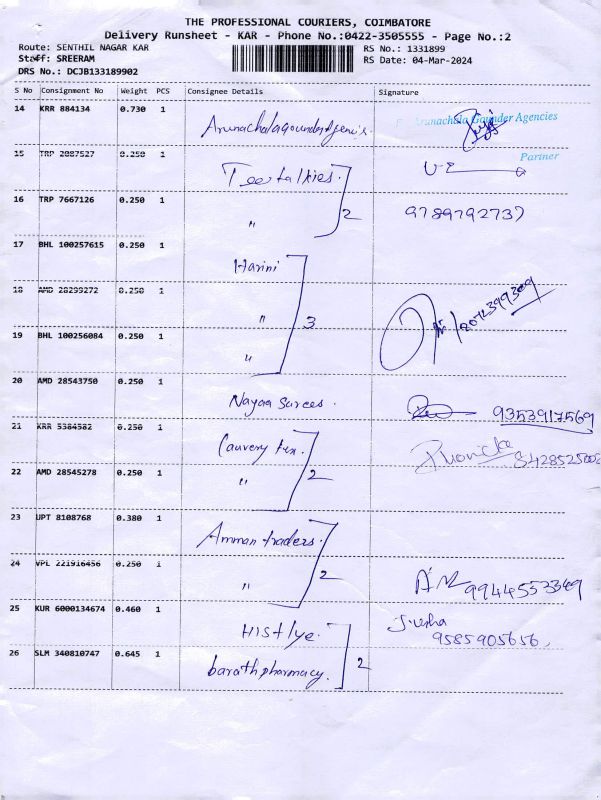 THE PROFESSIONAL COURIERS, COIMBATORE
Delivery Runsheet - KAR - Phone No.:0422-3505555 - Page No.:2
Route: SENTHIL NAGAR KAR RS No.: 1331899
Staff: SREERAM RS Date: 04-Mar-2024
DRS No.: DCJB133189902
S No Consignment No Weight PCS Consignee Details Signature
14 KRR 884134 0.730 1
Arunachala Gounder Agencies
Partner
15 TRP 2087527 0.250 1
Tee talkies.
16 TRP 7667126 0.250 1
" 2 9789792737
17 BHL 100257615 0.250 1
Harini
18 AMD 28299272 0.250 1
" 3
19 BHL 100256084 0.250 1
"
20 AMD 28543750 0.250 1
Nayaa Sarees. 9353917569
21 KRR 5384582 0.250 1
Cauvery tex
22 AMD 28545278 0.250 1
" 2
23 UPT 8108768 0.380 1
Amman traders.
24 VPL 221916456 0.250 1
" 2
25 KUR 6000134674 0.460 1
HIStlye. 9585905656
26 SLM 340810747 0.645 1
barath pharmacy. 2